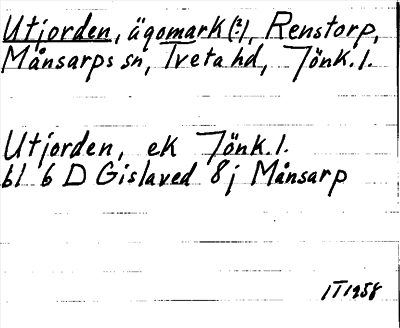 Utjorden, ägomark (?), Renstorp,
Månsarps sn, Tveta hd, Jönk. l.
Utjorden, ek Jönk. l.
bl 6 D Gislaved 8 j Månsarp
IT 1958